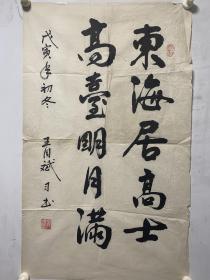 東海居高士
高臺明月滿
戊寅年初冬
王自斌書